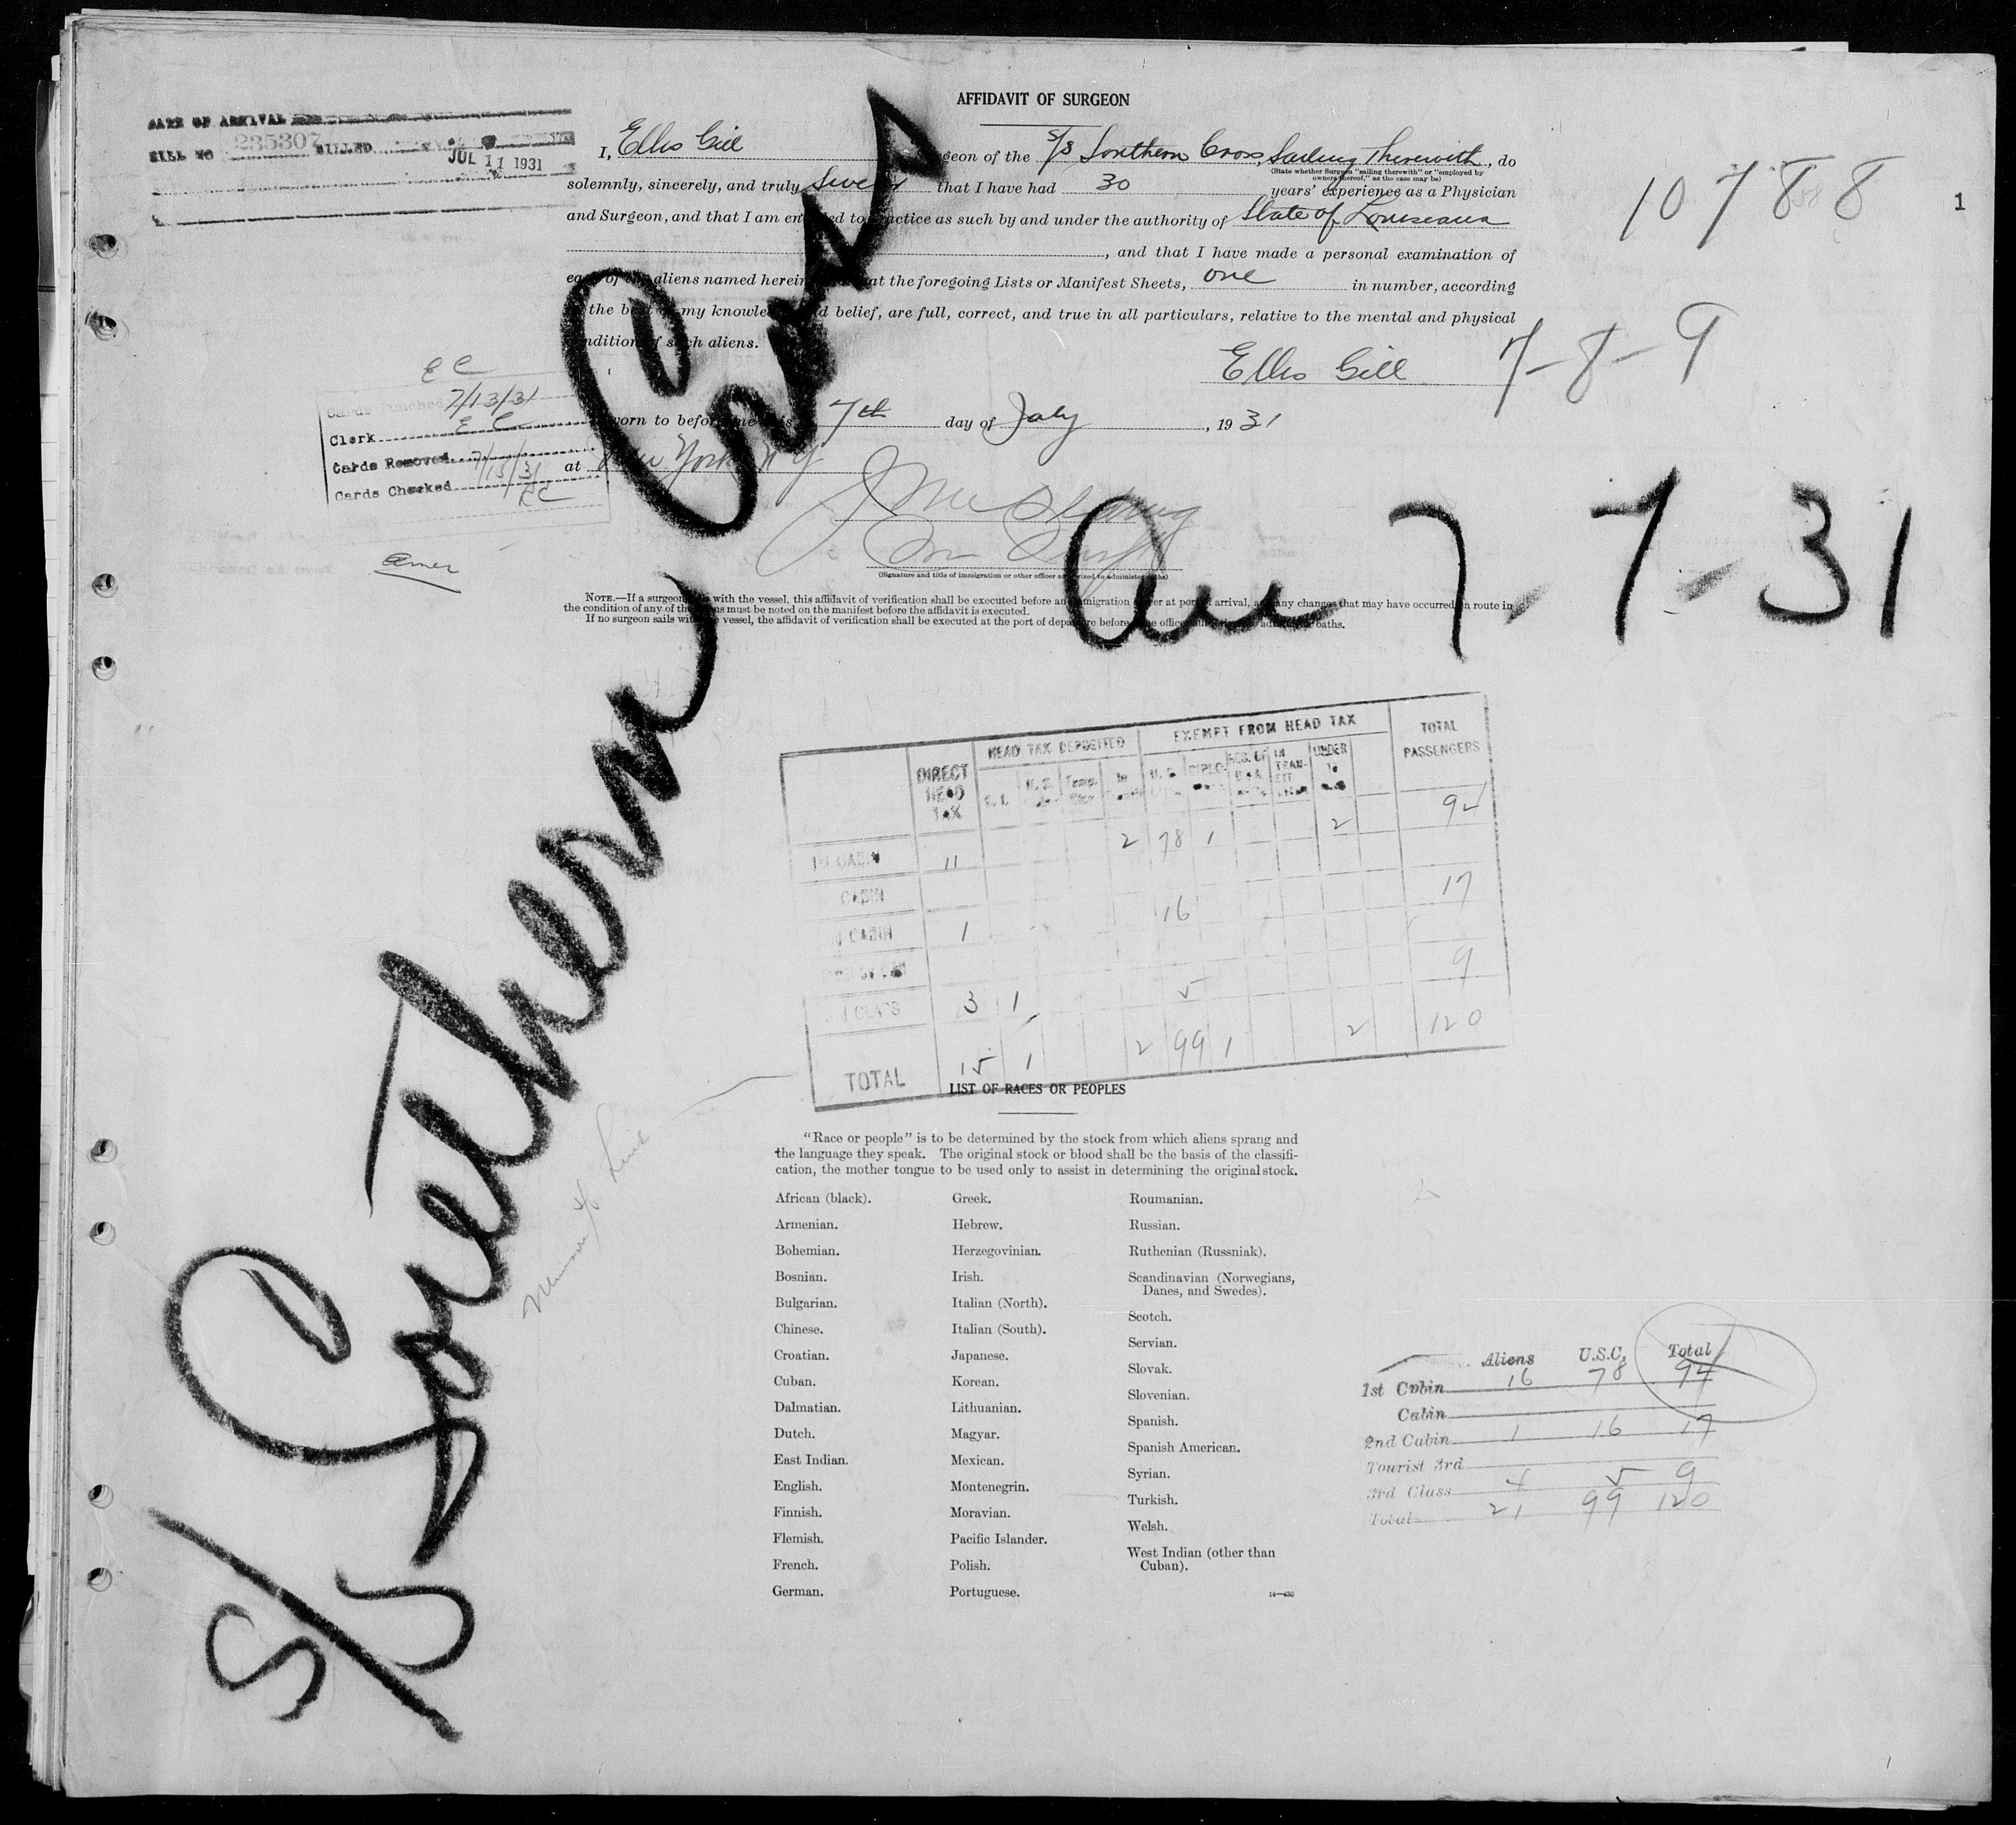 AFFIDAVIT OF SURGEON
DATE OF ARRIVAL
BILL NO 235307 BILLED JUL 11 1931
I, Ellis Gill geon of the S/S Southern Cross, Sailing Therewith, do
(State whether Surgeon "sailing therewith" or "employed by
owners thereof," as the case may be)
solemnly, sincerely, and truly swear that I have had 30 years' experience as a Physician
and Surgeon, and that I am en ed to practice as such by and under the authority of State of Louiseana
, and that I have made a personal examination of
each of the aliens named herein at the foregoing Lists or Manifest Sheets, one in number, according
the best my knowle d belief, are full, correct, and true in all particulars, relative to the mental and physical
ndition of such aliens.
10788
1
7-8-9
Ellis Gill
worn to before me this 7th day of July, 1931
at New York N Y
(Signature and title of immigration or other officer authorized to administer oaths)
E C
Cards Punched 7/13/31
Clerk E C
Cards Removed 7/15/31
Cards Checked EC
Amer
S/S Southern Cross
Arr 7-7-31
NOTE.—If a surgeon with the vessel, this affidavit of verification shall be executed before an immigration officer at port of arrival, and any changes that may have occurred en route in
the condition of any of the aliens must be noted on the manifest before the affidavit is executed.
If no surgeon sails with the vessel, the affidavit of verification shall be executed at the port of departure before the officer administer oaths.
DIRECT HEAD TAX
HEAD TAX DEPOSITED
EXEMPT FROM HEAD TAX
TOTAL PASSENGERS
IN TRAN-SIT
UNDER 16
1st CABIN 11 2 78 1 2 94
CABIN
CABIN 1 16 17
3 1 5 9
TOTAL 15 1 2 99 1 2 120
Munson S/S Line
LIST OF RACES OR PEOPLES
"Race or people" is to be determined by the stock from which aliens sprang and
the language they speak. The original stock or blood shall be the basis of the classifi-
cation, the mother tongue to be used only to assist in determining the original stock.
African (black).
Armenian.
Bohemian.
Bosnian.
Bulgarian.
Chinese.
Croatian.
Cuban.
Dalmatian.
Dutch.
East Indian.
English.
Finnish.
Flemish.
French.
German.
Greek.
Hebrew.
Herzegovinian.
Irish.
Italian (North).
Italian (South).
Japanese.
Korean.
Lithuanian.
Magyar.
Mexican.
Montenegrin.
Moravian.
Pacific Islander.
Polish.
Portuguese.
Roumanian.
Russian.
Ruthenian (Russniak).
Scandinavian (Norwegians,
Danes, and Swedes).
Scotch.
Servian.
Slovak.
Slovenian.
Spanish.
Spanish American.
Syrian.
Turkish.
Welsh.
West Indian (other than
Cuban).
14—430
Aliens U.S.C. Total
1st Cabin 16 78 94
Cabin
2nd Cabin 1 16 17
Tourist 3rd
3rd Class 4 5 9
Total 21 99 120